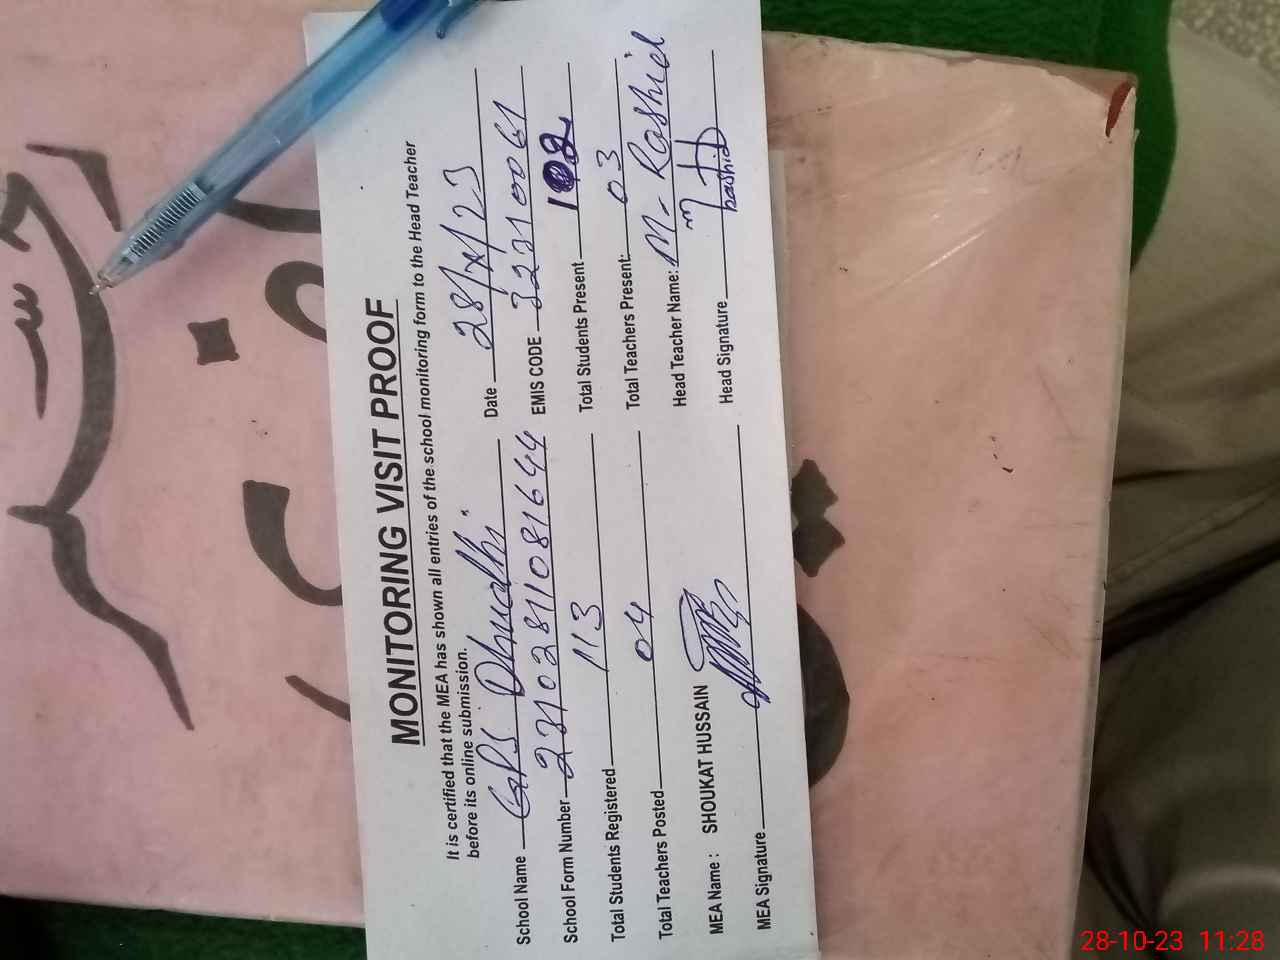 MONITORING VISIT PROOF
It is certified that the MEA has shown all entries of the school monitoring form to the Head Teacher
before its online submission.
School Name GPS Dhudhi Date 28/x/23
School Form Number 23102811081644 EMIS CODE 32210061
Total Students Registered 113 Total Students Present 102
Total Teachers Posted 04 Total Teachers Present: 03
MEA Name : SHOUKAT HUSSAIN Head Teacher Name: M. Rashid
MEA Signature Head Signature
Rashid
28-10-23 11:28